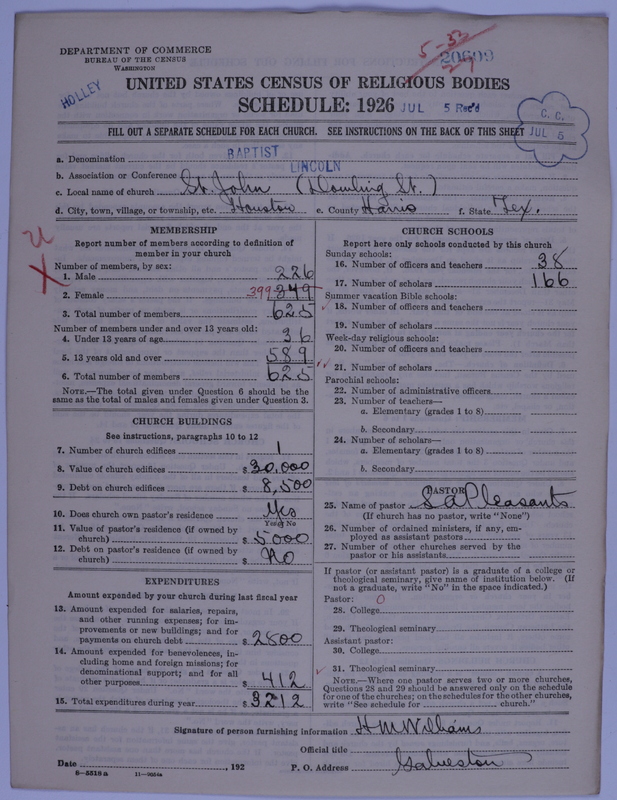 DEPARTMENT OF COMMERCE
BUREAU OF THE CENSUS
WASHINGTON
5-32
27
20699
HOLLEY
UNITED STATES CENSUS OF RELIGIOUS BODIES
SCHEDULE: 1926
JUL 5 Rec'd
C. C.
JUL 6
FILL OUT A SEPARATE SCHEDULE FOR EACH CHURCH. SEE INSTRUCTIONS ON THE BACK OF THIS SHEET
a. Denomination BAPTIST
b. Association or Conference LINCOLN
c. Local name of church St. John (Dowling St.)
d. City, town, village, or township, etc. Houston e. County Harris f. State Tex.
MEMBERSHIP
Report number of members according to definition of member in your church
Number of members, by sex:
1. Male 226
2. Female 399 349
3. Total number of members 625
Number of members under and over 13 years old:
4. Under 13 years of age 36
5. 13 years old and over 589
6. Total number of members 625
NOTE.—The total given under Question 6 should be the same as the total of males and females given under Question 3.
CHURCH BUILDINGS
See instructions, paragraphs 10 to 12
7. Number of church edifices 1
8. Value of church edifices $30,000
9. Debt on church edifices $8,500
10. Does church own pastor's residence Yes
Yes or No
11. Value of pastor's residence (if owned by church) $5000
12. Debt on pastor's residence (if owned by church) $No
EXPENDITURES
Amount expended by your church during last fiscal year
13. Amount expended for salaries, repairs, and other running expenses; for improvements or new buildings; and for payments on church debt $2800
14. Amount expended for benevolences, including home and foreign missions; for denominational support; and for all other purposes $412
15. Total expenditures during year $3212
CHURCH SCHOOLS
Report here only schools conducted by this church
Sunday schools:
16. Number of officers and teachers 38
17. Number of scholars 166
Summer vacation Bible schools:
18. Number of officers and teachers
19. Number of scholars
Week-day religious schools:
20. Number of officers and teachers
21. Number of scholars
Parochial schools:
22. Number of administrative officers
23. Number of teachers—
a. Elementary (grades 1 to 8)
b. Secondary
24. Number of scholars—
a. Elementary (grades 1 to 8)
b. Secondary
PASTOR
25. Name of pastor S A Pleasants
(If church has no pastor, write "None")
26. Number of ordained ministers, if any, employed as assistant pastors
27. Number of other churches served by the pastor or his assistants
If pastor (or assistant pastor) is a graduate of a college or theological seminary, give name of institution below. (If not a graduate, write "No" in the space indicated.)
Pastor: 0
28. College
29. Theological seminary
Assistant pastor:
30. College
31. Theological seminary
NOTE.—Where one pastor serves two or more churches, Questions 28 and 29 should be answered only on the schedule for one of the churches; on the schedules for the other churches, write "See schedule for church."
Signature of person furnishing information H M Williams
Official title
Date , 192 P. O. Address Galveston
8-5318 a 11-9664a